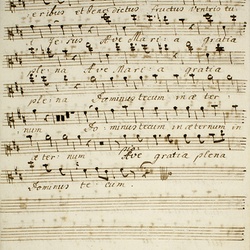 eribus et Benedictus fructus ventris tu
Jesus Ave Mari: a gratia
ple: na Ave Mari: a gratia
ple na Dominus tecum in æ ter
num Do: minus tecum in æternum in
æ ter: num Ave gratia plena
Dominus te: cum